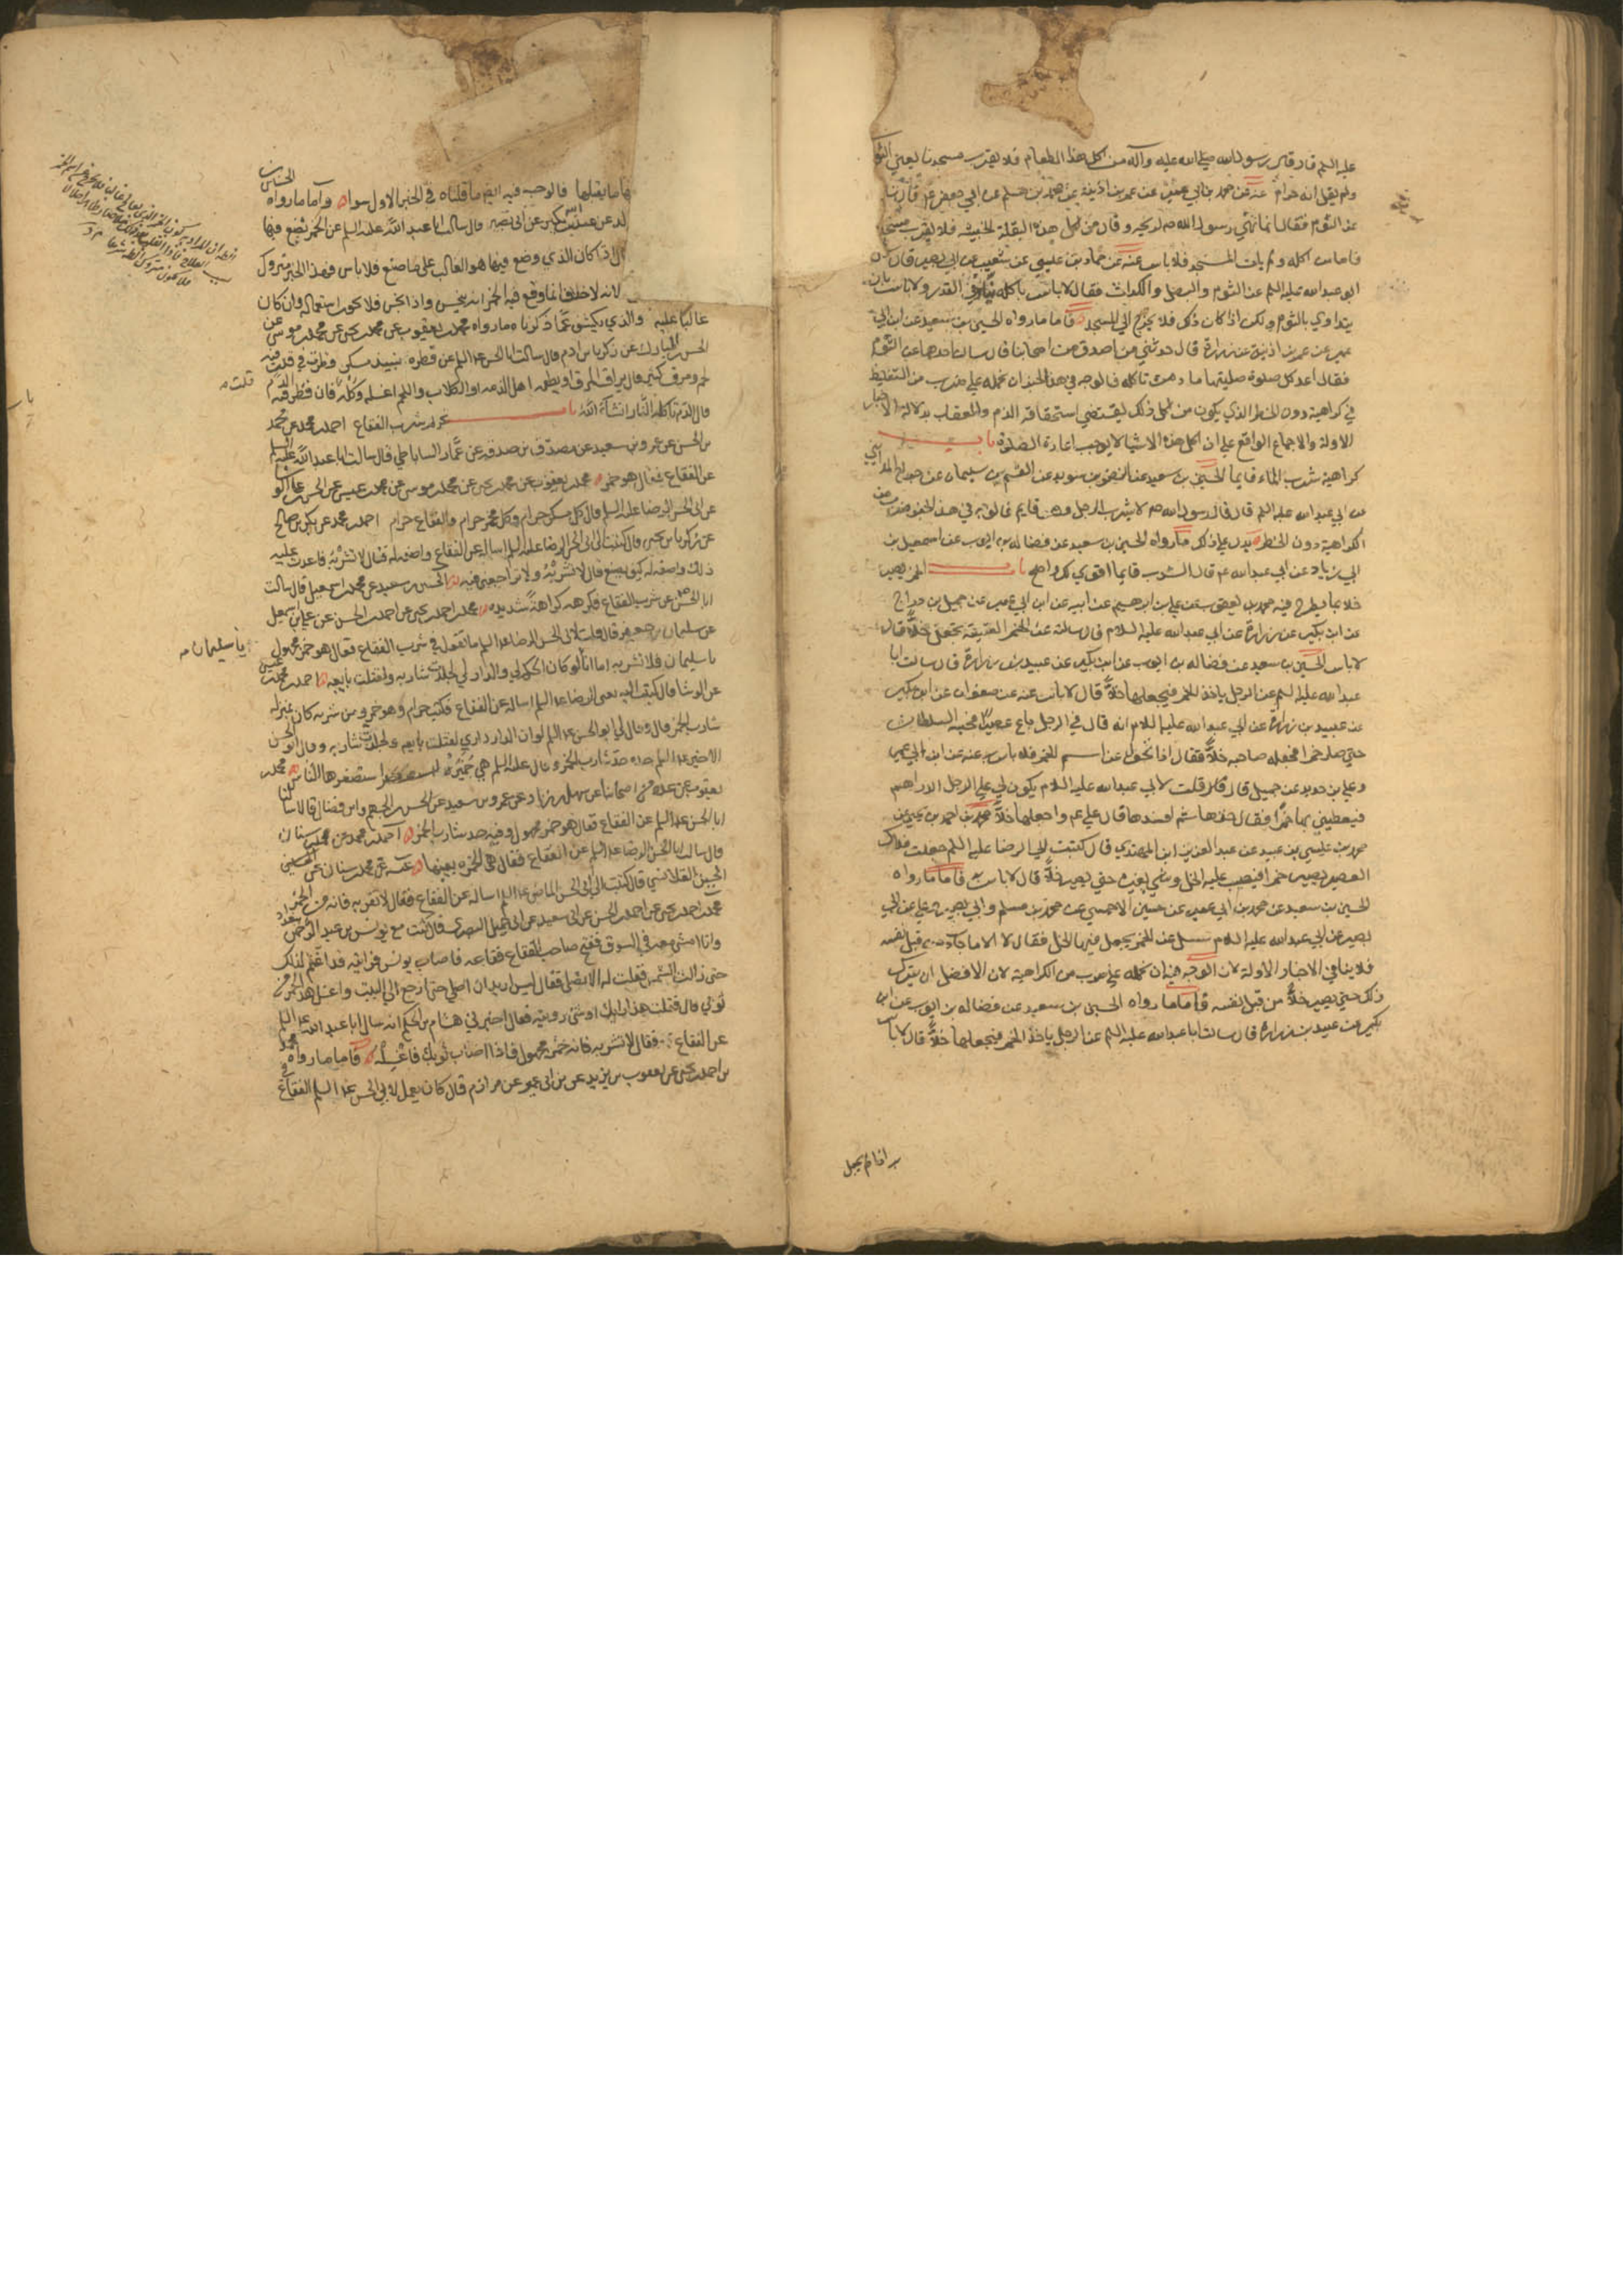 عليه السلم قال قال رسول الله صلى الله عليه وآله من اكل هذا الطعام فلا يقرب مسجدنا يعني الثوم
ولم يقل انه حرام عنه عن محمد بن ابي عمير عن عمر بن اذينة عن محمد بن مسلم عن ابي جعفر ع قال
عن الثوم فقال انما نهي رسول الله ص لريحه وقال من اكل هذه البقلة الخبيثه فلا يقرب مسجدنا
فاما من اكله ولم يات المسجد فلا باس عنه عن حماد بن عيسي عن شعيب عن ابي بصير قال سئل
ابو عبد الله عليه السلم عن الثوم والبصل والكراث فقال لا باس باكله نيا وفي القدر ولا باس بان
يتداوي بالثوم ولكن اذا كان ذلك فلا يخرج الي المسجد فاما ما رواه الحسين بن سعيد عن ابن ابي
عمير عن عمر بن اذينة عن زرارة قال حدثني من اصدق من اصحابنا قال سالت احدهما عن الثوم
فقال اعد كل صلوة صليتها ما دمت تاكله فالوجه في هذا الخبر ان نحمله علي ضرب من التغليظ
في كراهيته دون الحظر الذي يكون من اكل ذلك يقتضي استحقاقه الذم والعقاب بدلالة الاخبار
الاولة والاجماع الواقع علي ان اكل هذه الاشيا لا يوجب اعادة الصلوة باب
كراهية شرب الماء قايما الحسين بن سعيد عن النضر بن سويد عن القسم بن سليمان عن جراح المدايني
عن ابي عبد الله عليه السلم قال قال رسول الله ص لا يشرب الرجل وهو قايم فالوجه في هذا الخبر ضرب من
الكراهية دون الحظر يدل علي ذلك ما رواه الحسين بن سعيد عن فضاله بن ايوب عن اسمعيل بن
ابي زياد عن ابي عبد الله ع قال الشرب قايما اقوي لك واصح باب الخمر يصير
خلا بما يطرح فيه محمد بن يعقوب عن علي بن ابرهيم عن ابيه عن ابن ابي عمير عن جميل بن دراج
عن ابن بكير عن زرارة عن ابي عبد الله عليه السلام قال سالته عن الخمر العتيقة تجعل خلا قال
لا باس الحسين بن سعيد عن فضاله بن ايوب عن ابن بكير عن عبيد بن زرارة قال سالت ابا
عبد الله عليه السلم عن الرجل ياخذ الخمر فيجعلها خلا قال لا باس عنه عن صفوان عن ابن بكير
عن عبيد بن زرارة عن ابي عبد الله عليه السلام انه قال في الرجل باع عصيرا فحبسه السلطان
حتي صار خمرا فجعله صاحبه خلا فقال اذا تحول عن اسم الخمر فلا باس به عنه عن ابن ابي عمير
وعلي بن حديد عن جميل قال قلت لابي عبد الله عليه السلام يكون لي علي الرجل الدراهم
فيعطيني بها خمرا فقال خذها ثم افسدها قال علي ع واجعلها خلا محمد بن احمد بن يحيي عن
محمد بن عيسي بن عبيد عن عبد العزيز ابن المهتدي قال كتبت الي الرضا عليه السلم جعلت فداك
العصير يصير خمرا فيصب عليه الخل وشي يغيره حتي يصير خلا قال لا باس به فاما ما رواه
الحسين بن سعيد عن محمد بن ابي عمير عن حسين الاحمسي عن محمد بن مسلم وابي بصير وعلي عن ابي
بصير عن ابي عبد الله عليه السلام سئل عن الخمر يجعل فيها الخل فقال لا الا ما جاء من قبل نفسه
فلا ينافي الاخبار الاولة لان الوجه فيه ان نحمله علي ضرب من الكراهية لان الافضل ان يترك
ذلك حتي يصير خلا من قبل نفسه فاما ما رواه الحسين بن سعيد عن فضاله بن ايوب عن ابن
بكير عن عبيد بن زرارة قال سالت ابا عبد الله عليه السلم عن الرجل ياخذ الخمر فيجعلها خلا قال لا باس
اذا لم يجعل
فيها ما يقلبها فالوجه فيه ايضا ما قلناه في الخبر الاول سواء واما ما رواه الحسين بن
عن ابي بصير قال سالت ابا عبد الله عليه السلم عن الخمر تصنع فيها
اذا كان الذي وضع فيها هو الغالب على ما صنع فلا باس فهذا الخبر متروك
لانه لا خلاف انما وقع فيه الخمر انه ينجس واذا نجس فلا يجوز استعماله وان كان
غالبا عليه والذي يكشف عما ذكرناه ما رواه محمد بن يعقوب عن محمد بن يحيى عن محمد بن موسى عن
الحسن المبارك عن زكريا بن ادم قال سالت ابا الحسن ع عن قطرة نبيذ مسكر قطرت في قدر فيه
لحم ومرق كثير قال يهراق المرق او يطعمه اهل الذمه او الكلاب واللحم اغسله وكله قلت فان قطر فيه الدم
قال الدم تاكله النار انشاء الله باب تحريم شرب الفقاع احمد بن محمد عن محمد
بن الحسن عن عمرو بن سعيد عن مصدق بن صدقه عن عمار الساباطي قال سالت ابا عبد الله عليه السلم
عن الفقاع فقال هو خمر محمد بن يعقوب عن محمد بن يحيى عن محمد بن موسى عن محمد بن عيسى عن الحسن بن علي الوشا
عن ابي الحسن الرضا عليه السلم قال كل مسكر حرام وكل مخمر حرام والفقاع حرام احمد بن محمد عن بكر بن صالح
عن زكريا بن يحيى قال كتبت الى ابي الحسن الرضا عليه السلم اساله عن الفقاع واصفه له فقال لا تشربه فاعدت عليه
ذلك واصفه له كيف يصنع فقال لا تشربه ولا تراجعني فيه الحسين بن سعيد عن محمد بن اسمعيل قال سالت
ابا الحسن ع عن شرب الفقاع فكرهه كراهة شديدة محمد بن احمد بن يحيى عن احمد بن الحسن عن علي بن اسمعيل
عن سليمان بن جعفر قال قلت لابي الحسن الرضا ع ما تقول في شرب الفقاع فقال هو خمر مجهول
يا سليمان فلا تشربه اما انا لو كان الحكم لي والدار لي لجلدت شاربه ولقتلت بايعه احمد بن محمد بن عيسى
عن الوشا قال كتبت اليه يعني الرضا ع اساله عن الفقاع فكتب حرام وهو خمر ومن شربه كان بمنزلة
شارب الخمر قال وقال لي ابو الحسن ع لو ان الدار داري لقتلت بايعه ولجلدت شاربه وقال ابو الحسن
الاخير ع حده حد شارب الخمر وقال عليه السلم هي خميرة استصغرها الناس محمد بن
يعقوب عن عدة من اصحابنا عن سهل بن زياد عن عمرو بن سعيد عن الحسن بن الجهم وابن فضال قالا سالنا
ابا الحسن ع عن الفقاع فقال هو خمر مجهول وفيه حد شارب الخمر احمد بن محمد عن محمد بن سنان
قال سالت ابا الحسن الرضا ع عن الفقاع فقال هي الخمرة بعينها عنه عن محمد بن سنان عن
الحسين القلانسي قال كتبت الى ابي الحسن الماضي ع اساله عن الفقاع فقال لا تقربه فانه من الخمر
محمد بن احمد بن يحيى عن احمد بن الحسن عن ابي سعيد عن ابي جميل البصري قال كنت مع يونس بن عبد الرحمن ببغداد
وانا امشي معه في السوق ففتح صاحب الفقاع فقاعه فاصاب يونس فرايته قد اغتم لذلك
حتى زالت الشمس فقلت له الا تصلي فقال ليس اريد ان اصلي حتى ارجع الى البيت واغسل هذا الخمر من
ثوبي قال فقلت هذا رايك او شي رويته فقال اخبرني هشام بن الحكم انه سال ابا عبد الله ع
عن الفقاع فقال لا تشربه فانه خمر مجهول فاذا اصاب ثوبك فاغسله فاما ما رواه محمد
بن احمد بن يحيى عن يعقوب بن يزيد عن بن ابي عمير عن مرازم قال كان يعمل لابي الحسن ع الفقاع في
قلت م
يا سليمان م